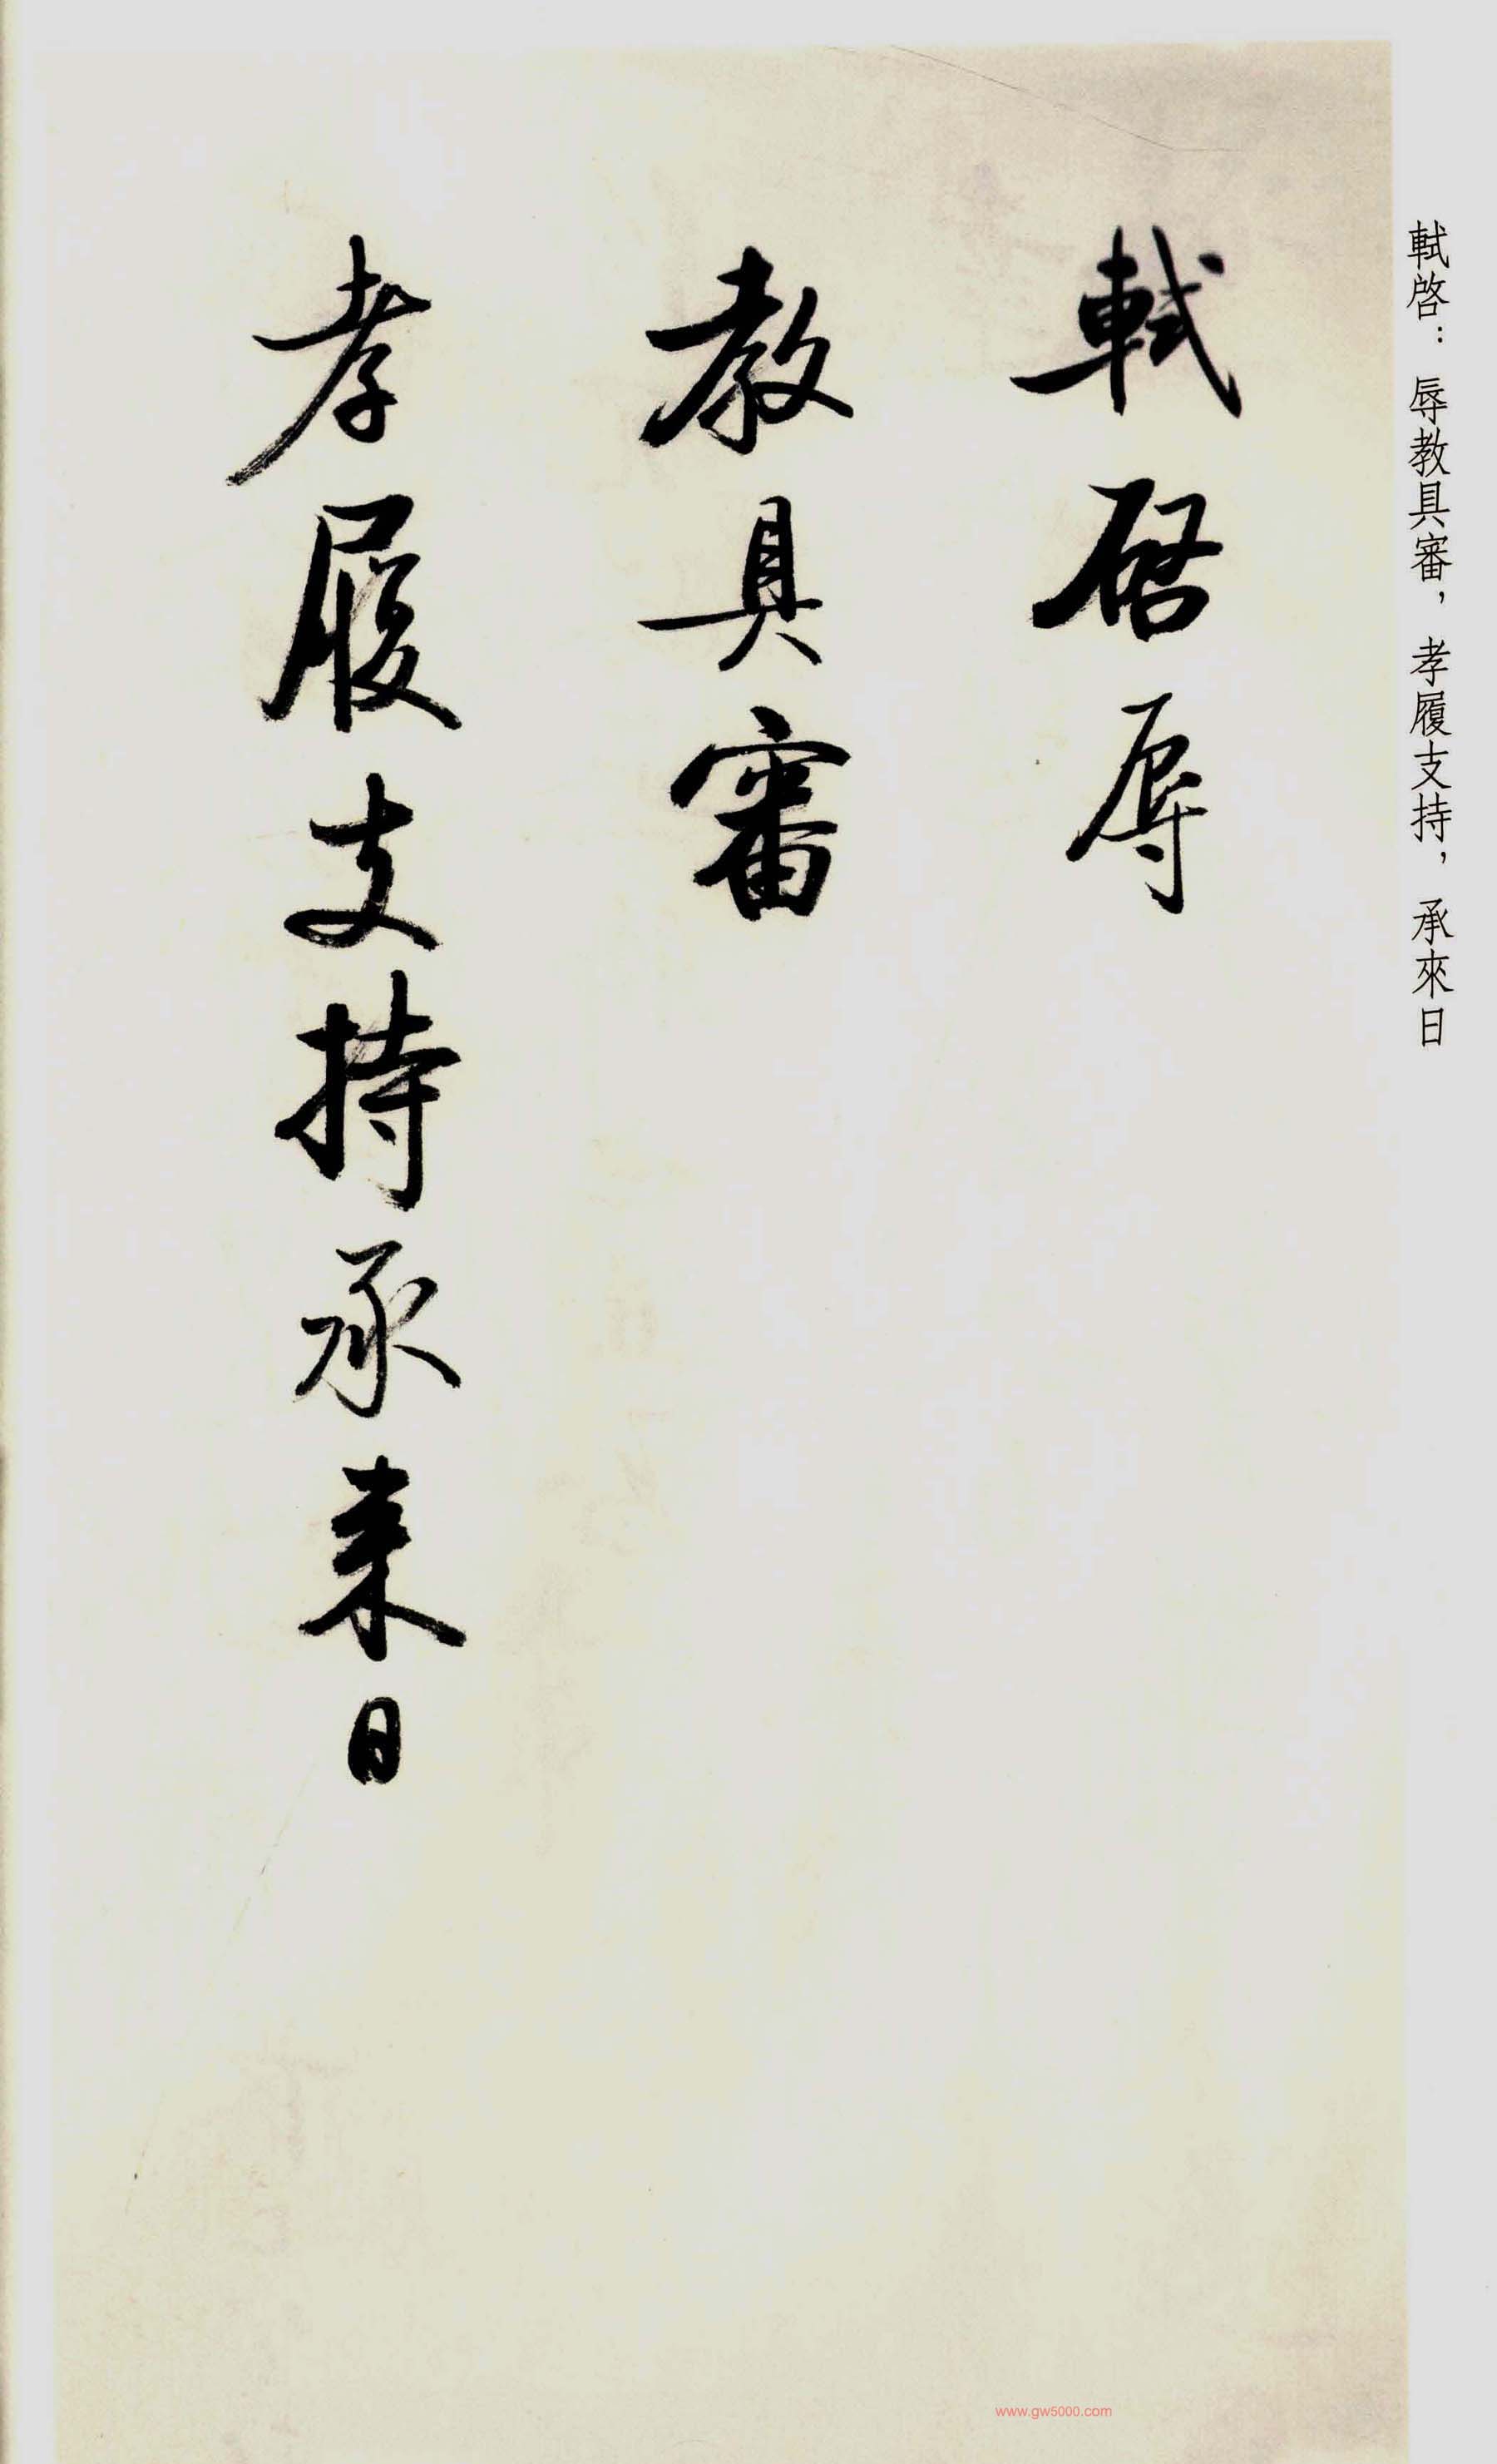 軾啓：辱教具審，孝履支持，承來日
軾啓辱
教具審
孝履支持承来日
www.gw5000.com